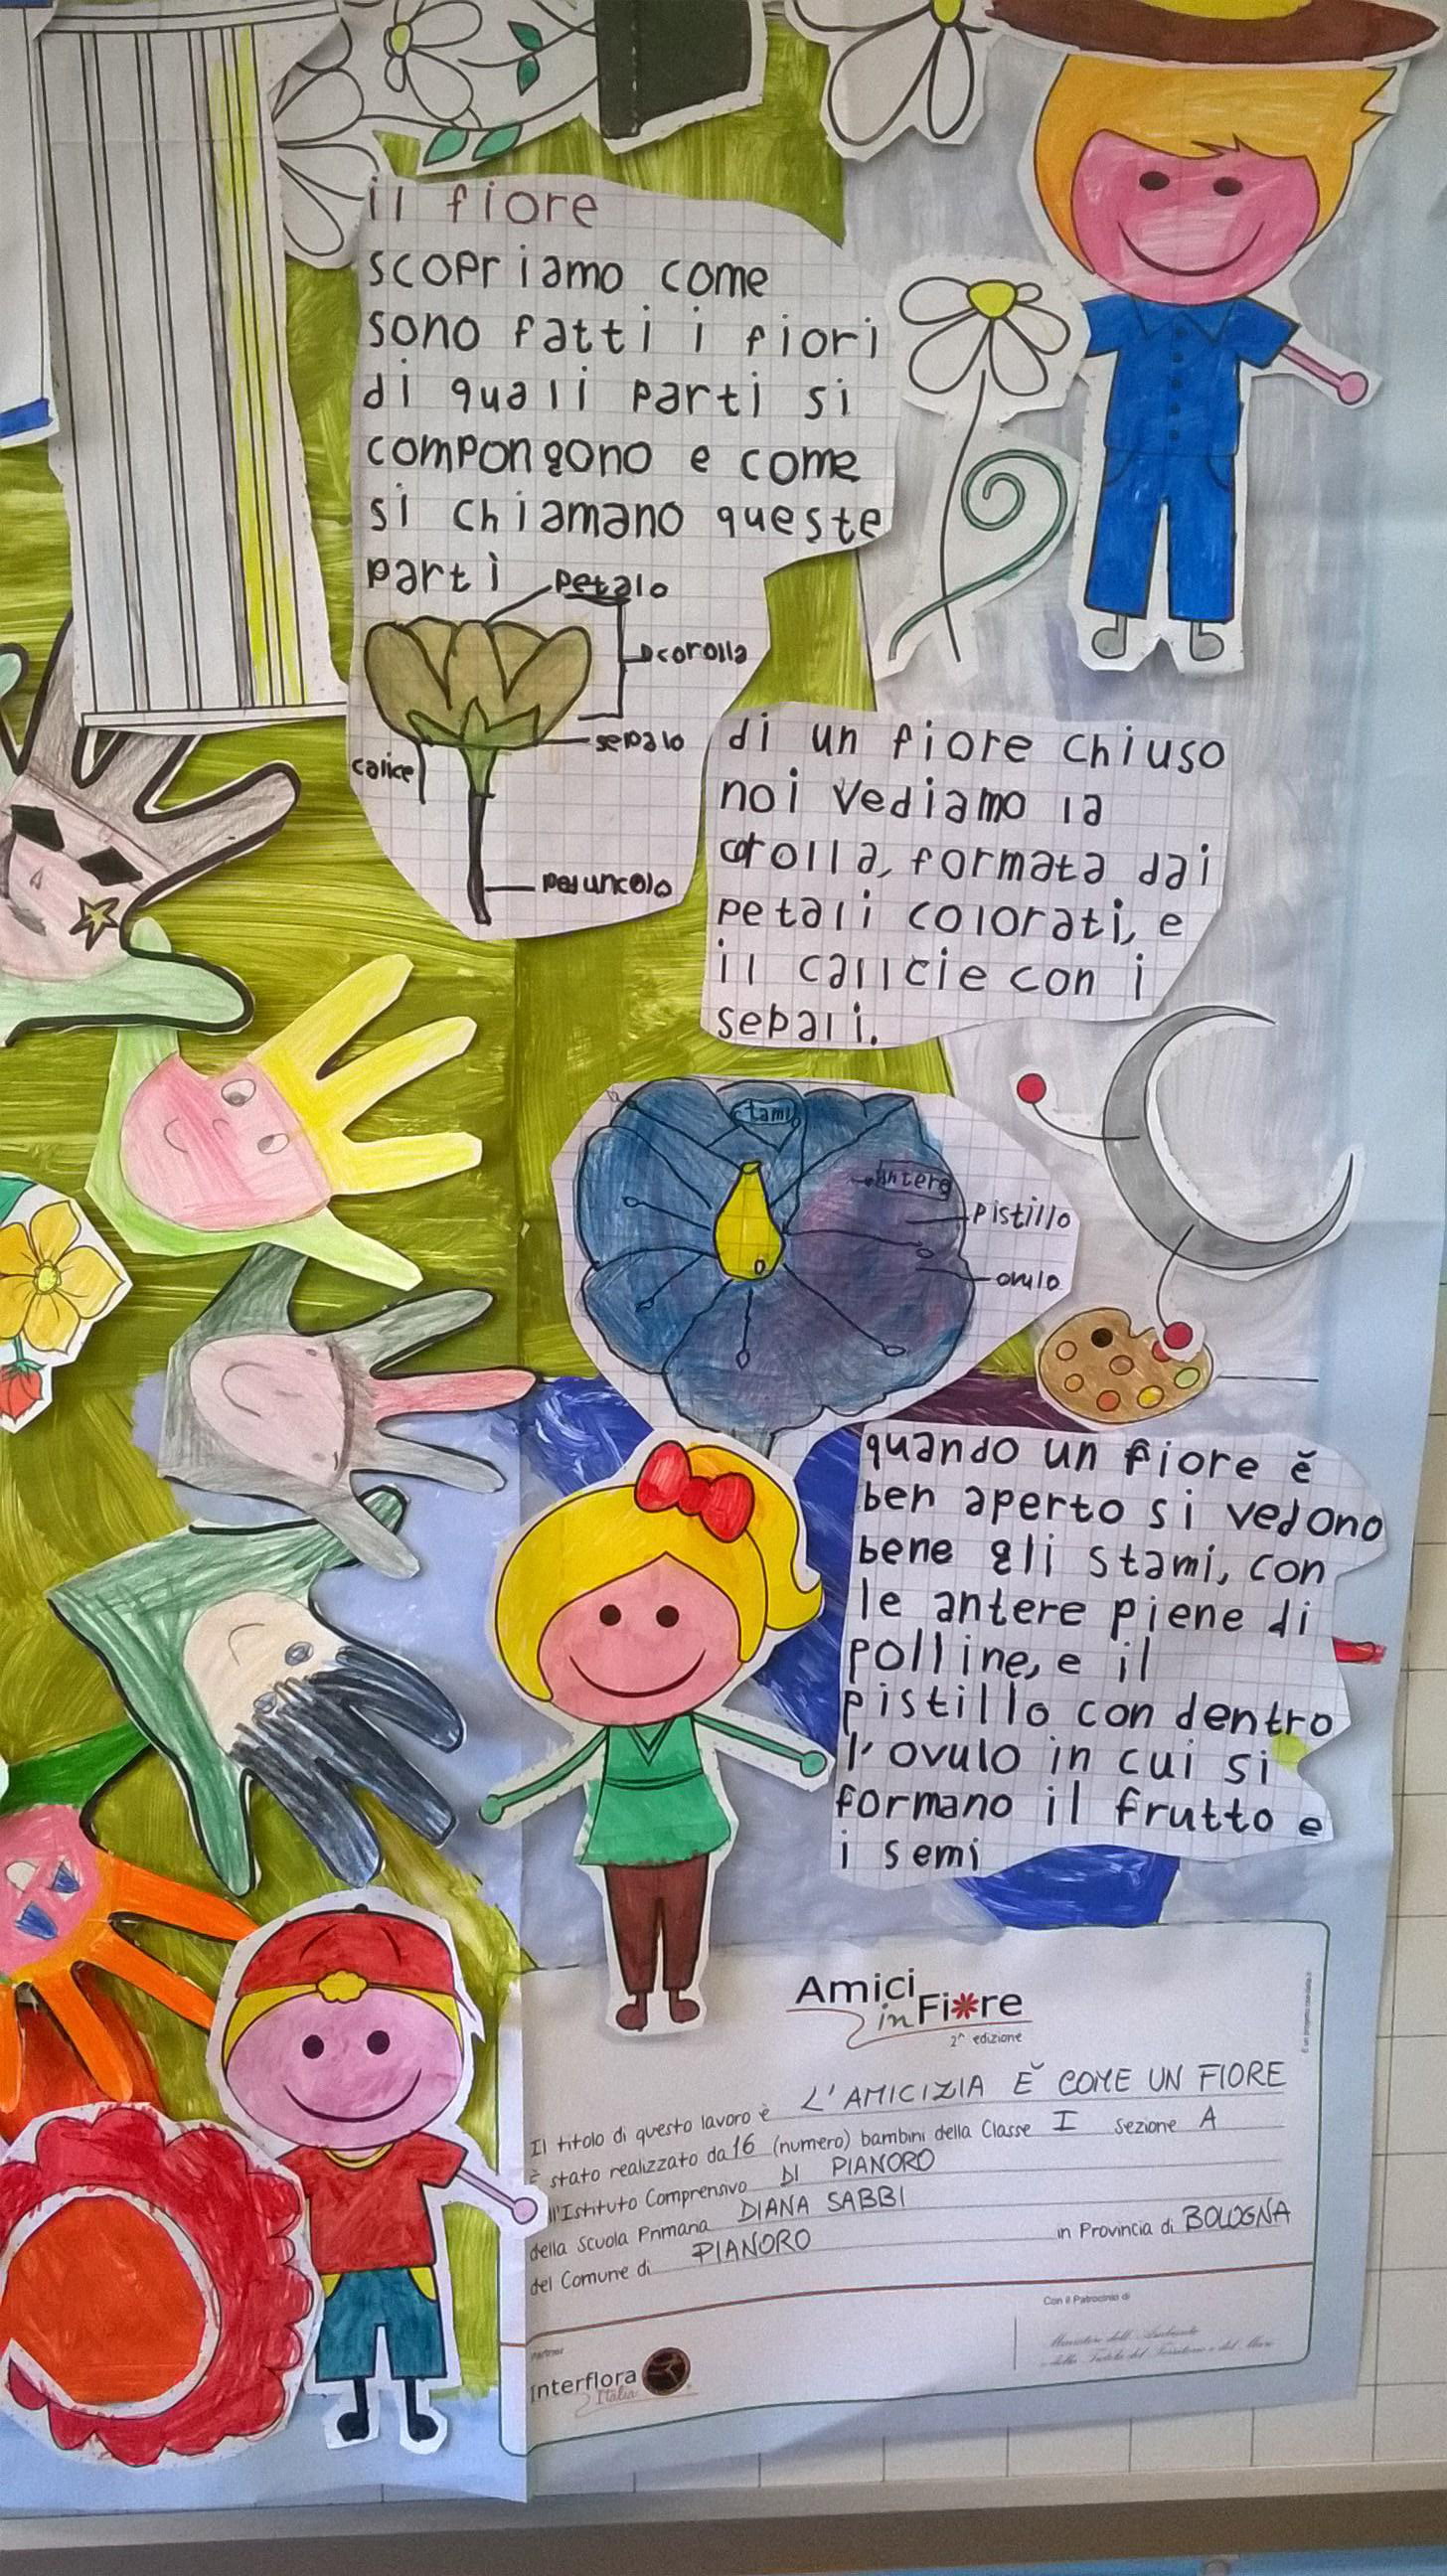 il fiore
scopriamo come
sono fatti i fiori
di quali parti si
compongono e come
si chiamano queste
parti
petalo
corolla
sepalo
calice
peduncolo
di un fiore chiuso
noi vediamo la
corolla, formata dai
petali colorati, e
il callcie con i
sepali.
stami
antere
pistillo
ovulo
quando un fiore ĕ
ben aperto si vedono
bene gli stami, con
le antere piene di
polline, e il
pistillo con dentro
l'ovulo in cui si
formano il frutto e
i semi
Amici
in Fiore
2^ edizione
Il titolo di questo lavoro è L'AMICIZIA Ĕ COME UN FIORE
È stato realizzato da 16 (numero) bambini della Classe I Sezione A
ll'Istituto Comprensivo DI PIANORO
della Scuola Primaria DIANA SABBI
del Comune di PIANORO in Provincia di BOLOGNA
Con il Patrocinio di
Ministero dell'Ambiente
e della Tutela del Territorio e del Mare
Interflora
Italia